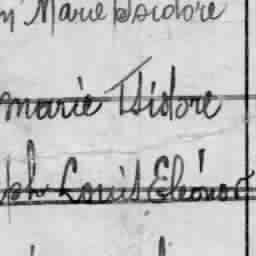 Marie Isidore
marie Isidore
ph Louis Eléonor